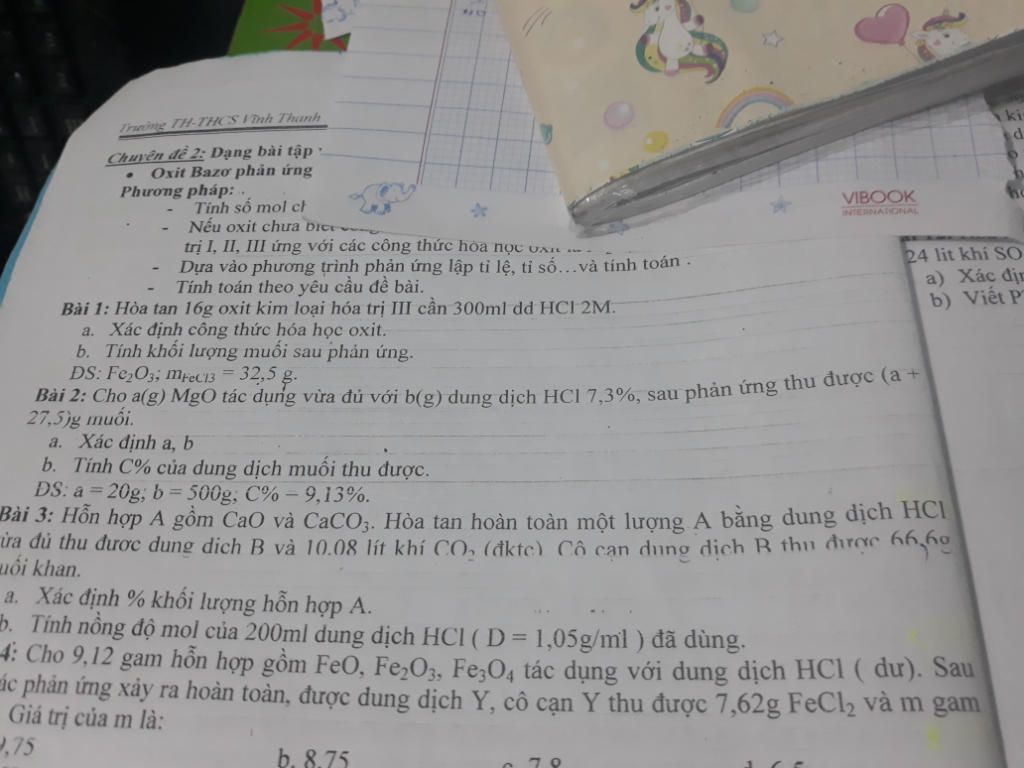 Trường TH-THCS Vĩnh Thanh
Chuyên đề 2: Dạng bài tập
• Oxit Bazơ phản ứng
Phương pháp:
- Tính số mol
- Nếu oxit chưa
trị I, II, III ứng với các công thức hóa học
- Dựa vào phương trình phản ứng lập tỉ lệ, tỉ số…và tính toán
- Tính toán theo yêu cầu đề bài.
Bài 1: Hòa tan 16g oxit kim loại hóa trị III cần 300ml dd HCl 2M.
a. Xác định công thức hóa học oxit.
b. Tính khối lượng muối sau phản ứng.
ĐS: Fe₂O₃; mFeCl3 = 32,5 g.
Bài 2: Cho a(g) MgO tác dụng vừa đủ với b(g) dung dịch HCl 7,3%, sau phản ứng thu được (a +
27,5)g muối.
a. Xác định a, b
b. Tính C% của dung dịch muối thu được.
ĐS: a = 20g; b = 500g; C% = 9,13%.
Bài 3: Hỗn hợp A gồm CaO và CaCO₃. Hòa tan hoàn toàn một lượng A bằng dung dịch HCl
đủ thu được dung dịch B và 10,08 lít khí CO₂ (đktc). Cô cạn dung dịch B thu được 66,6g
khan.
a. Xác định % khối lượng hỗn hợp A.
b. Tính nồng độ mol của 200ml dung dịch HCl ( D = 1,05g/ml ) đã dùng.
4: Cho 9,12 gam hỗn hợp gồm FeO, Fe₂O₃, Fe₃O₄ tác dụng với dung dịch HCl ( dư). Sau
phản ứng xảy ra hoàn toàn, được dung dịch Y, cô cạn Y thu được 7,62g FeCl₂ và m gam
Giá trị của m là:
,75
b. 8,75
VIBOOK
INTERNATIONAL
24 lít khí SO
a) Xác
b) Viết